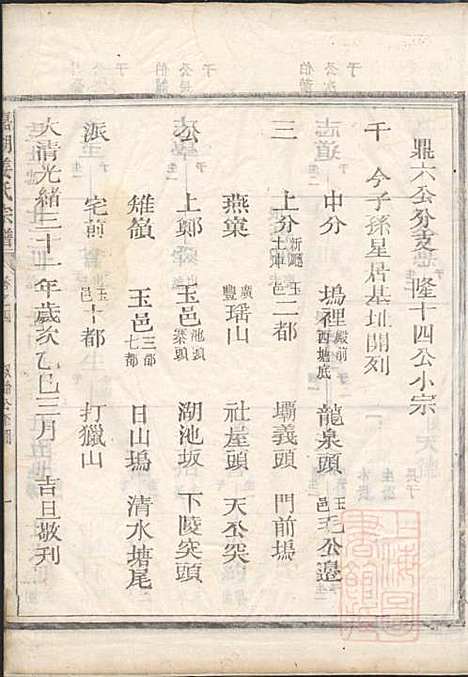 鼎六公分支 隆十四公小宗
千 今子孫星居基址開列
中分 塢裡殿前西塘底 龍泉頭 玉邑毛公邉
三 上分新廳土庫 玉邑二都 壩義頭 門前塢
燕窠 廣豐㙧山 社屋頭 天公突
公 上鄭 玉邑池頭寨頭 湖池坂 下陵突頭
雉領 玉邑三都七都 日山塢 清水塘尾
派 宅前 玉邑十都 打獵山
大清光緒三十一年歲次乙巳三月 吉旦敬刊
姜氏宗譜